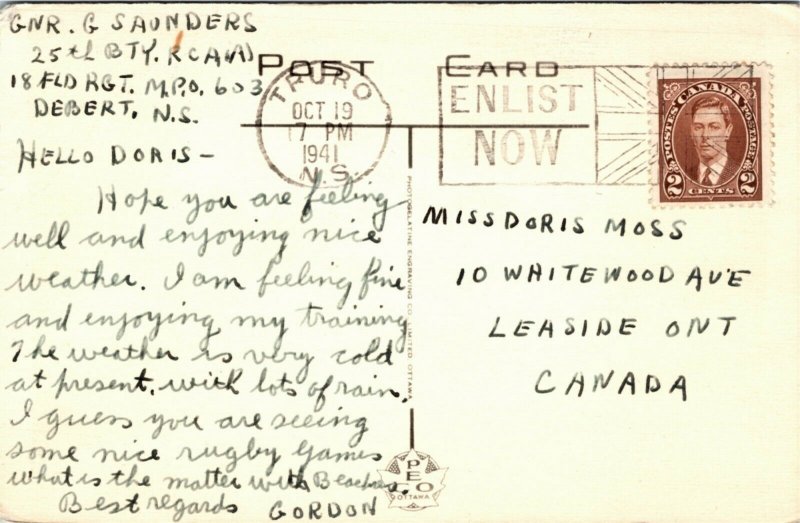 GNR. G SAUNDERS
25th BTY. RCA(A)
18 FLD RGT. M.P.O. 603
DEBERT, N.S.
POST CARD
TRURO
OCT 19
17 PM
1941
N.S.
ENLIST
NOW
POSTES CANADA POSTAGE
2 CENTS 2
HELLO DORIS –
Hope you are feeling
well and enjoying nice
weather. I am feeling fine
and enjoying my training
The weather is very cold
at present, with lots of rain.
I guess you are seeing
some nice rugby games
what is the matter with Beaches.
Best regards
GORDON
MISS DORIS MOSS
10 WHITEWOOD AVE
LEASIDE ONT
CANADA
PHOTOGELATINE ENGRAVING CO. LIMITED, OTTAWA
PECO
OTTAWA